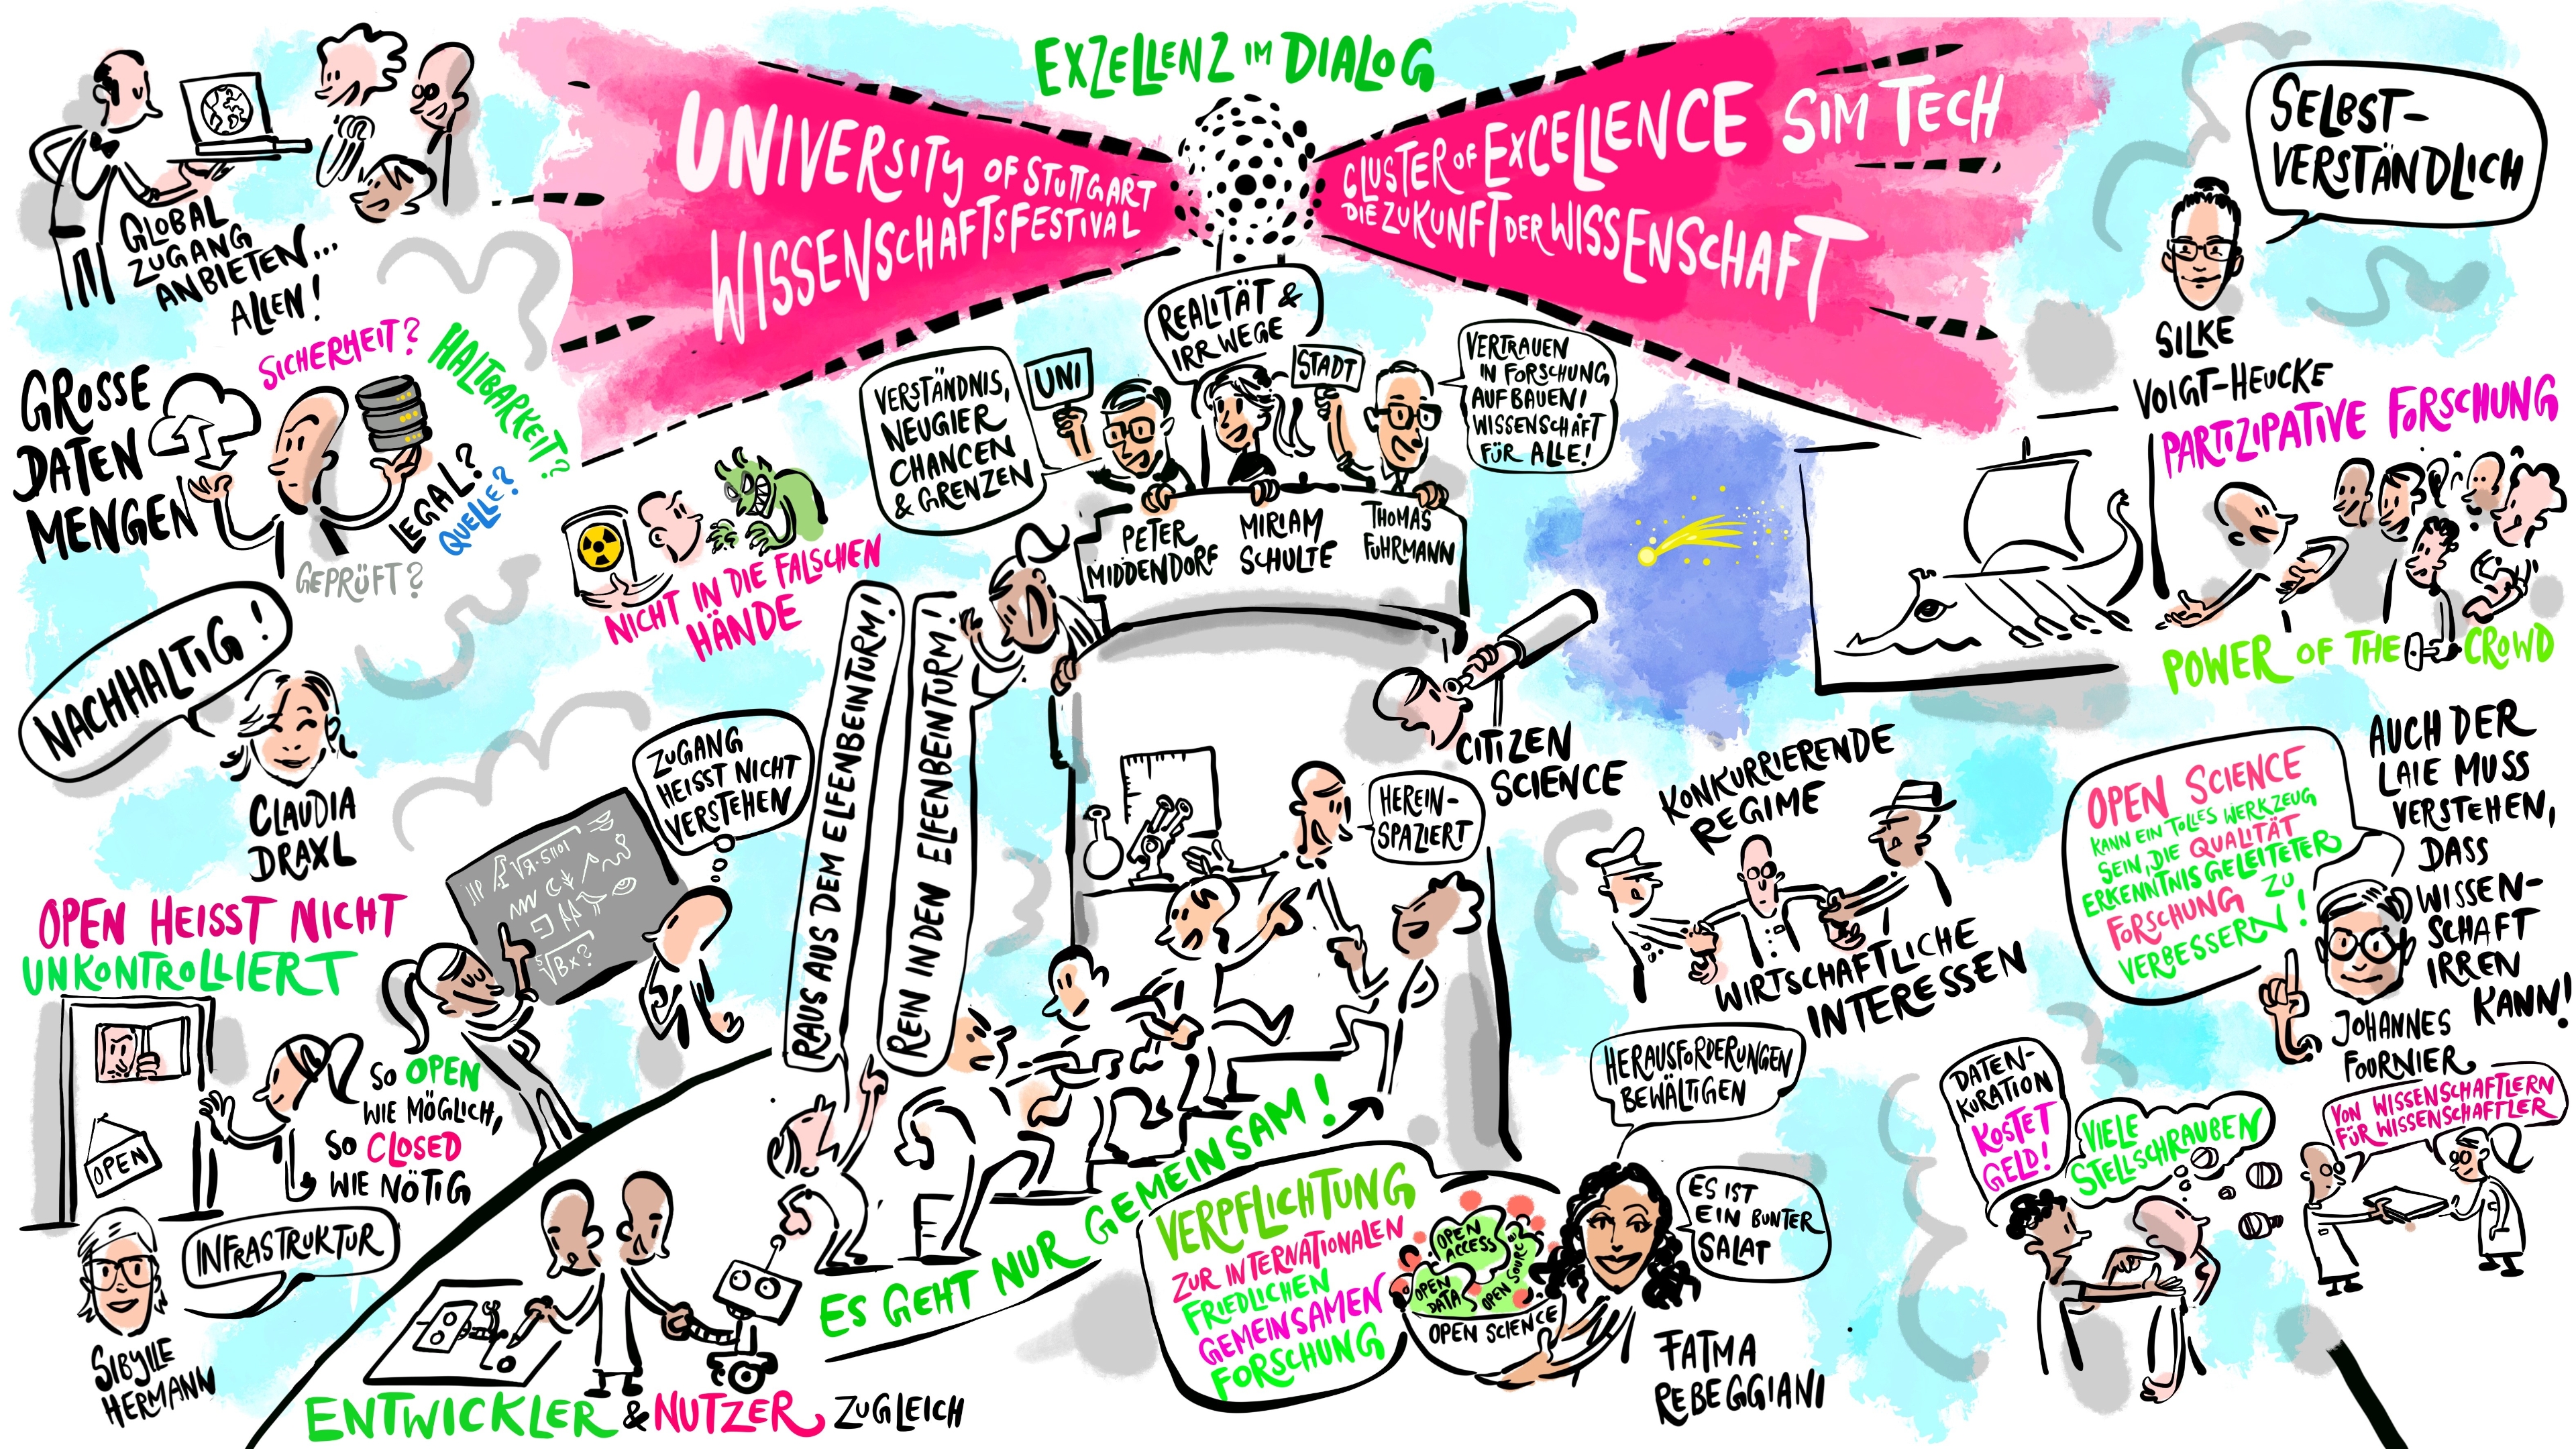 EXZELLENZ IM DIALOG
UNIVERSITY OF STUTTGART
WISSENSCHAFTSFESTIVAL
CLUSTER OF EXCELLENCE SIM TECH
DIE ZUKUNFT DER WISSENSCHAFT
GLOBAL
ZUGANG
ANBIETEN...
ALLEN!
GROSSE
DATEN
MENGEN
SICHERHEIT?
HALTBARKEIT?
LEGAL?
QUELLE?
GEPRÜFT?
NICHT IN DIE FALSCHEN
HÄNDE
NACHHALTIG!
CLAUDIA
DRAXL
OPEN HEISST NICHT
UNKONTROLLIERT
OPEN
SO OPEN
WIE MÖGLICH,
SO CLOSED
WIE NÖTIG
INFRASTRUKTUR
SIBYLLE
HERMANN
ZUGANG
HEISST NICHT
VERSTEHEN
RAUS AUS DEM ELFENBEINTURM!
REIN IN DEN ELFENBEINTURM!
VERSTÄNDNIS,
NEUGIER
CHANCEN
& GRENZEN
UNI
REALITÄT &
IRRWEGE
STADT
VERTRAUEN
IN FORSCHUNG
AUFBAUEN!
WISSENSCHAFT
FÜR ALLE!
PETER
MIDDENDORF
MIRIAM
SCHULTE
THOMAS
FUHRMANN
CITIZEN
SCIENCE
HEREIN-
SPAZIERT
ES GEHT NUR GEMEINSAM!
ENTWICKLER & NUTZER ZUGLEICH
VERPFLICHTUNG
ZUR INTERNATIONALEN
FRIEDLICHEN
GEMEINSAMEN
FORSCHUNG
OPEN
ACCESS
OPEN
DATA
OPEN SOURCE
OPEN SCIENCE
HERAUSFORDERUNGEN
BEWÄLTIGEN
ES IST
EIN BUNTER
SALAT
FATMA
REBEGGIANI
KONKURRIERENDE
REGIME
WIRTSCHAFTLICHE
INTERESSEN
SELBST-
VERSTÄNDLICH
SILKE
VOIGT-HEUCKE
PARTIZIPATIVE FORSCHUNG
POWER OF THE CROWD
OPEN SCIENCE
KANN EIN TOLLES WERKZEUG
SEIN, DIE QUALITÄT
ERKENNTNISGELEITETER
FORSCHUNG ZU
VERBESSERN!
AUCH DER
LAIE MUSS
VERSTEHEN,
DASS
WISSEN-
SCHAFT
IRREN
KANN!
JOHANNES
FOURNIER
DATEN-
KURATION
KOSTET
GELD!
VIELE
STELLSCHRAUBEN
VON WISSENSCHAFTLERN
FÜR WISSENSCHAFTLER